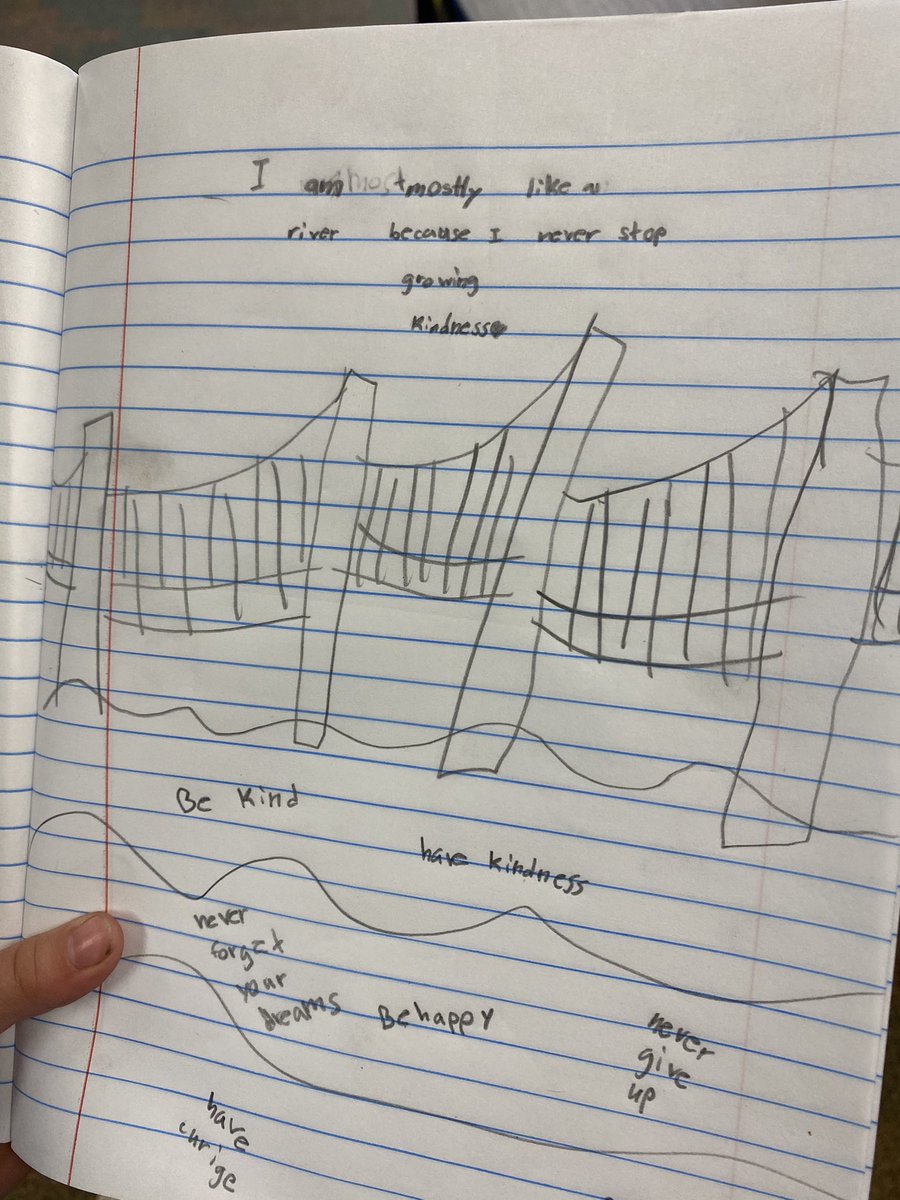 I am mostly like a
river because I never stop
growing
kindness
Be Kind
have kindness
never
forget
your
dreams
Be happy
never
give
up
have
churige